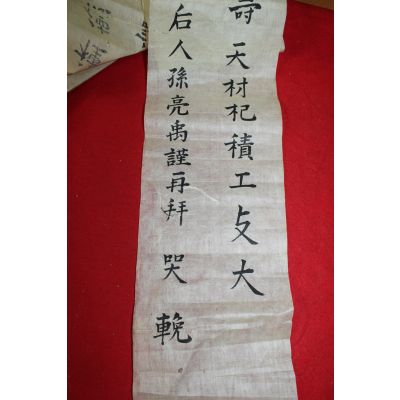 天材杞積工大
后人孫亮禹謹再拜 哭 輓